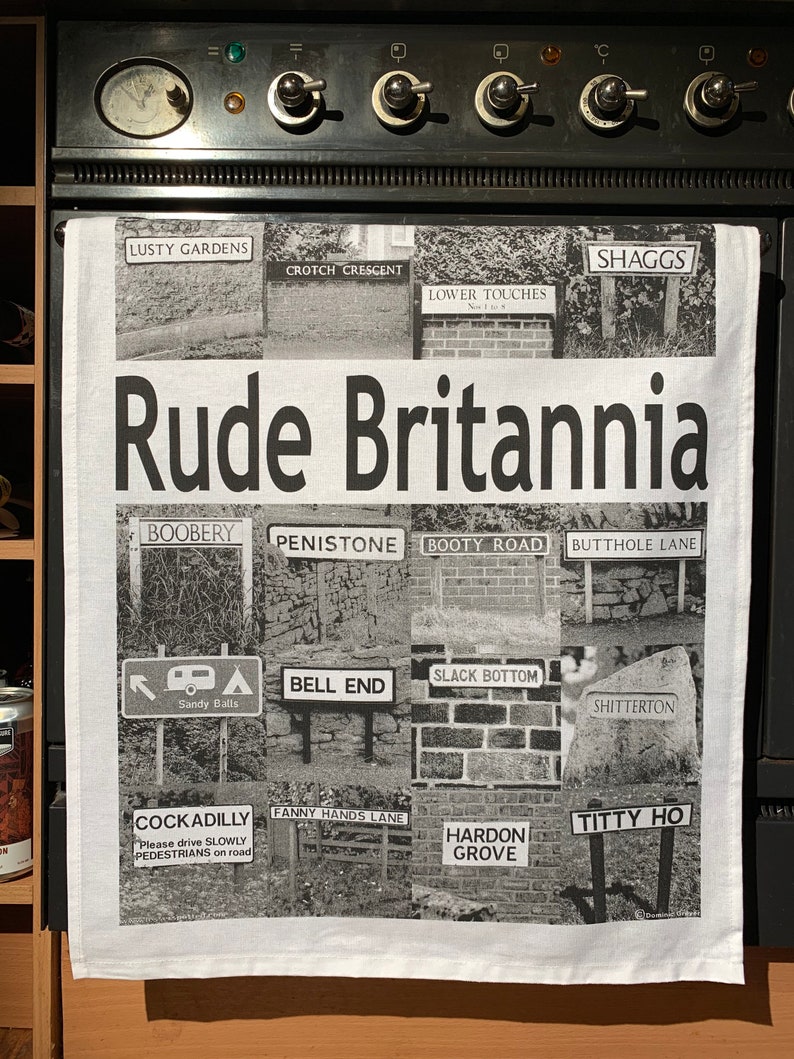 °C
LUSTY GARDENS
CROTCH CRESCENT
LOWER TOUCHES
Nos 1 to 8
SHAGGS
Rude Britannia
BOOBERY
PENISTONE
BOOTY ROAD
BUTTHOLE LANE
Sandy Balls
BELL END
SLACK BOTTOM
SHITTERTON
COCKADILLY
Please drive SLOWLY
PEDESTRIANS on road
FANNY HANDS LANE
HARDON
GROVE
TITTY HO